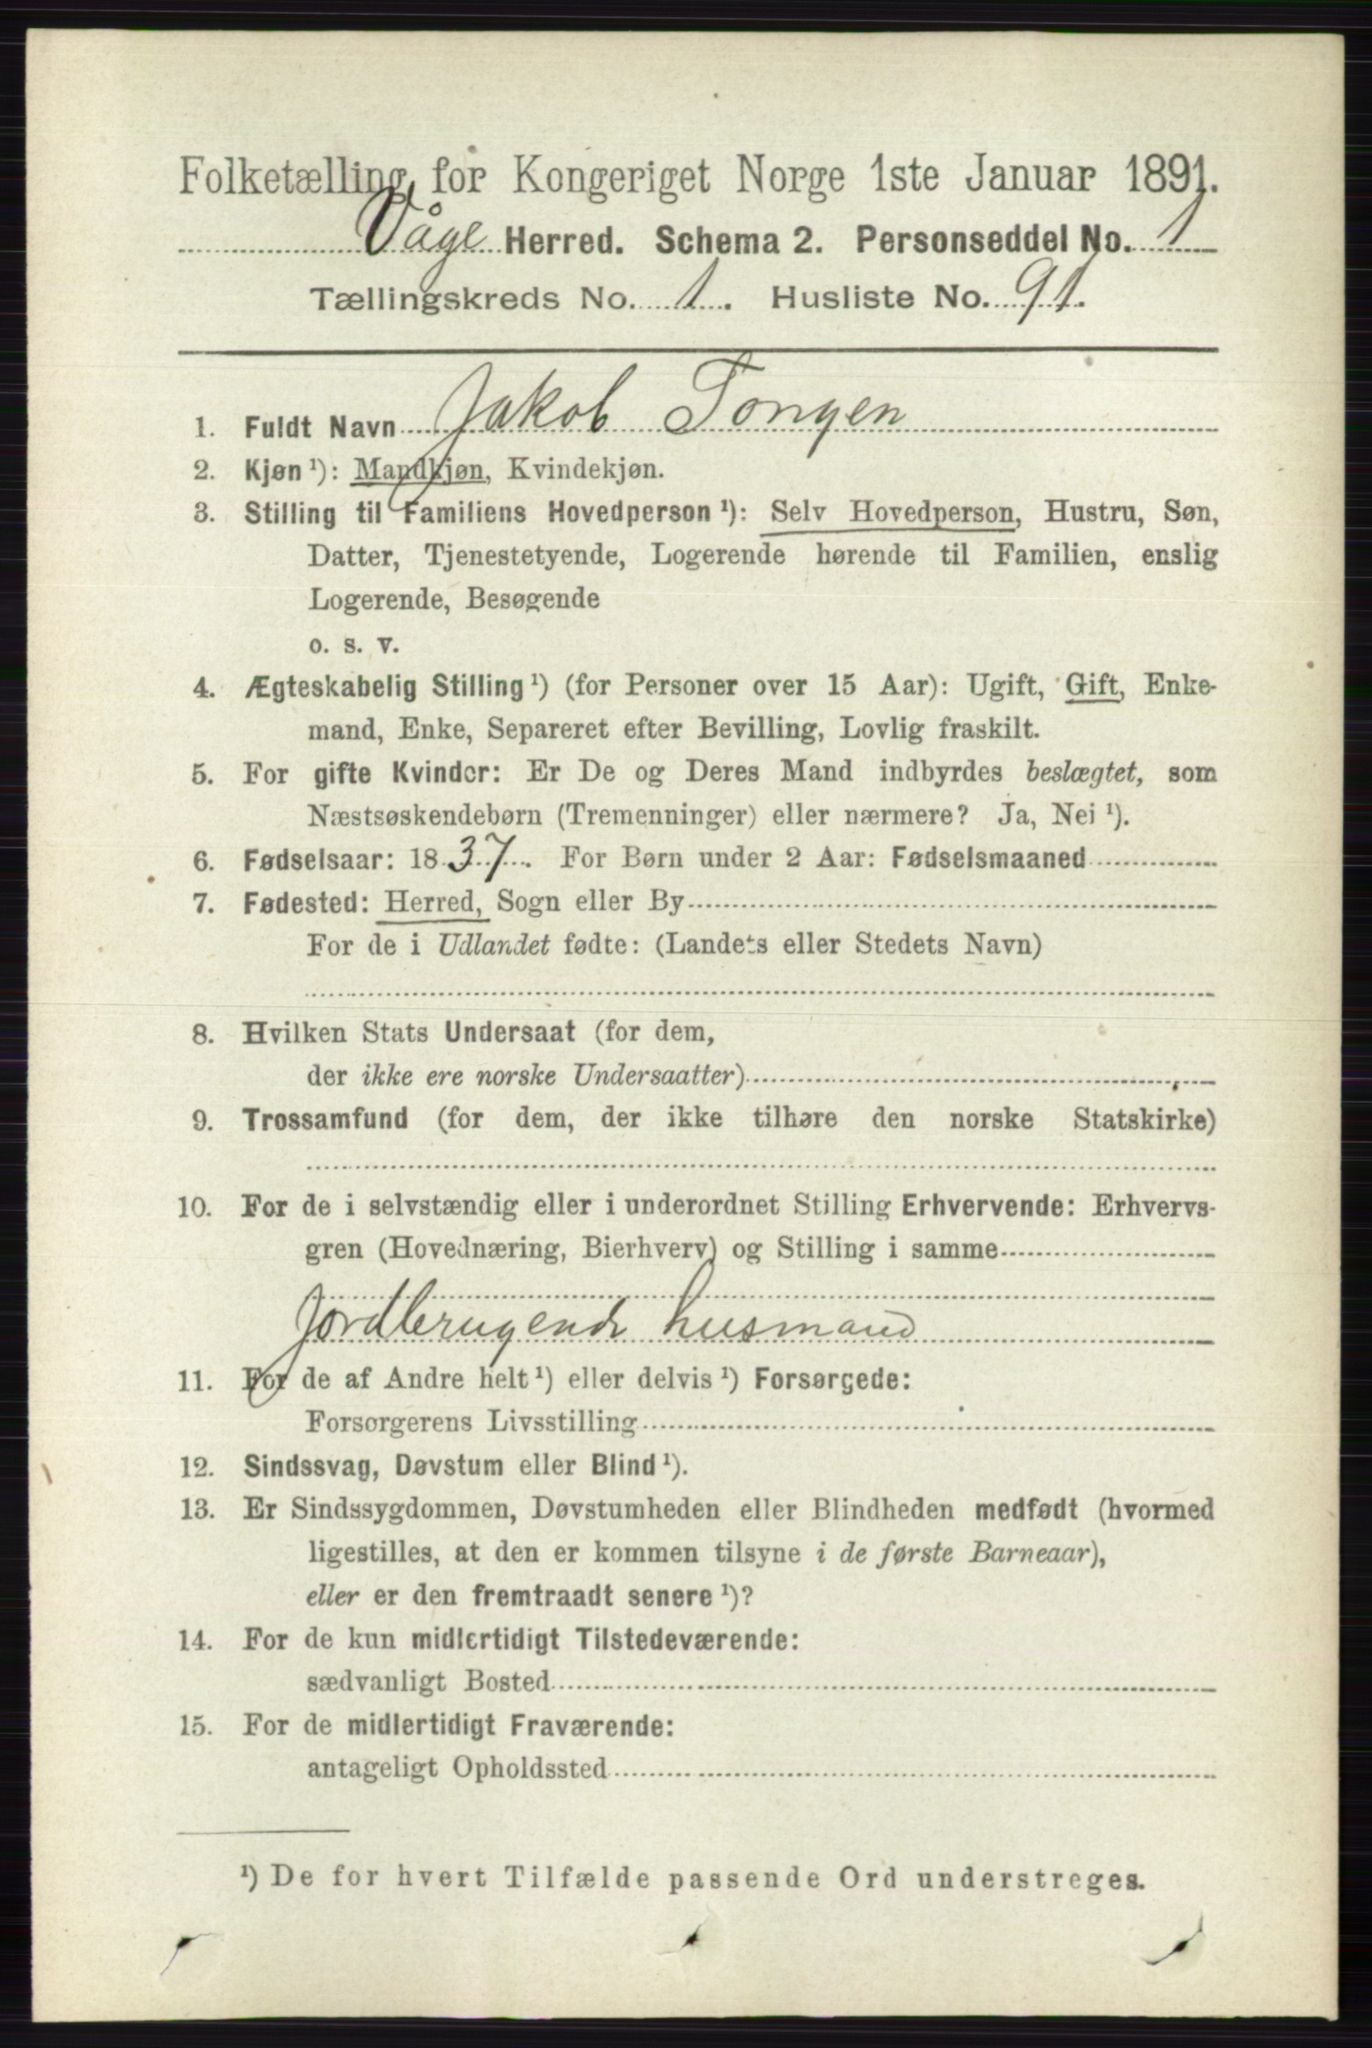 Folketælling for Kongeriget Norge 1ste Januar 1891.
Våge Herred. Schema 2. Personseddel No. 1
Tællingskreds No. 1. Husliste No. 91.
1. Fuldt Navn Jakob Tongen
2. Kjøn ¹): Mandkjøn, Kvindekjøn.
3. Stilling til Familiens Hovedperson ¹): Selv Hovedperson, Hustru, Søn,
Datter, Tjenestetyende, Logerende hørende til Familien, enslig
Logerende, Besøgende
o. s. v.
4. Ægteskabelig Stilling ¹) (for Personer over 15 Aar): Ugift, Gift, Enke-
mand, Enke, Separeret efter Bevilling, Lovlig fraskilt.
5. For gifte Kvinder: Er De og Deres Mand indbyrdes beslægtet, som
Næstsøskendebørn (Tremenninger) eller nærmere? Ja, Nei ¹).
6. Fødselsaar: 1837. For Børn under 2 Aar: Fødselsmaaned
7. Fødested: Herred, Sogn eller By
For de i Udlandet fødte: (Landets eller Stedets Navn)
8. Hvilken Stats Undersaat (for dem,
der ikke ere norske Undersaatter)
9. Trossamfund (for dem, der ikke tilhøre den norske Statskirke)
10. For de i selvstændig eller i underordnet Stilling Erhvervende: Erhvervs-
gren (Hovednæring, Bierhverv) og Stilling i samme
Jordbrugende husmand
11. For de af Andre helt ¹) eller delvis ¹) Forsørgede:
Forsorgerens Livsstilling
12. Sindssvag, Døvstum eller Blind ¹).
13. Er Sindssygdommen, Døvstumheden eller Blindheden medfødt (hvormed
ligestilles, at den er kommen tilsyne i de første Barneaar),
eller er den fremtraadt senere ¹)?
14. For de kun midlertidigt Tilstedeværende:
sædvanligt Bosted
15. For de midlertidigt Fraværende:
antageligt Opholdssted
¹) De for hvert Tilfælde passende Ord understreges.